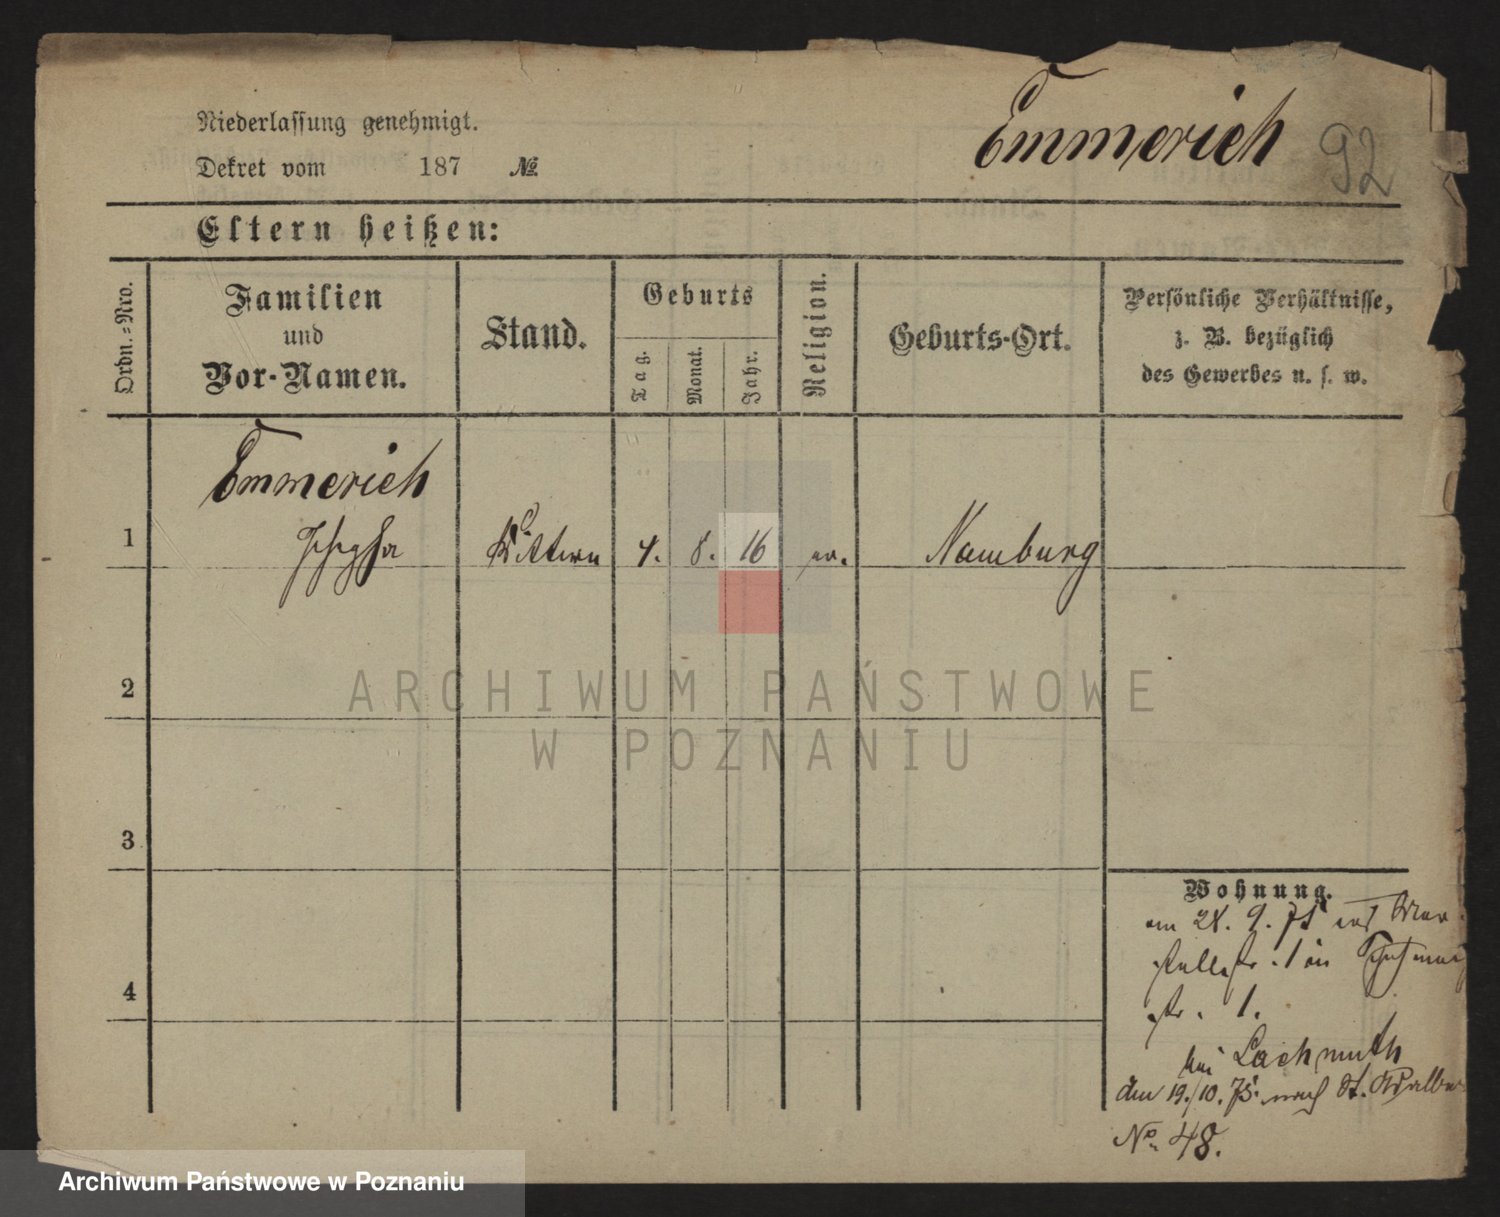 Niederlassung genehmigt.
Dekret vom 187 №
Emmerich 92
Eltern heißen:
Ordn.-Nro.
Familien
und
Vor-Namen.
Stand.
Geburts
Tag.
Monat.
Jahr.
Religion.
Geburts-Ort.
Persönliche Verhältnisse,
z. B. bezüglich
des Gewerbes u. s. w.
Emmerich
1 4. 8. 16 ev. Naumburg
2
3
4
Wohnung.
am 9. 75
str. 1 in
str. 1.
bei Lachmuth
den 19./10. 75. nach St.
No 48.
ARCHIWUM PAŃSTWOWE
W POZNANIU
Archiwum Państwowe w Poznaniu